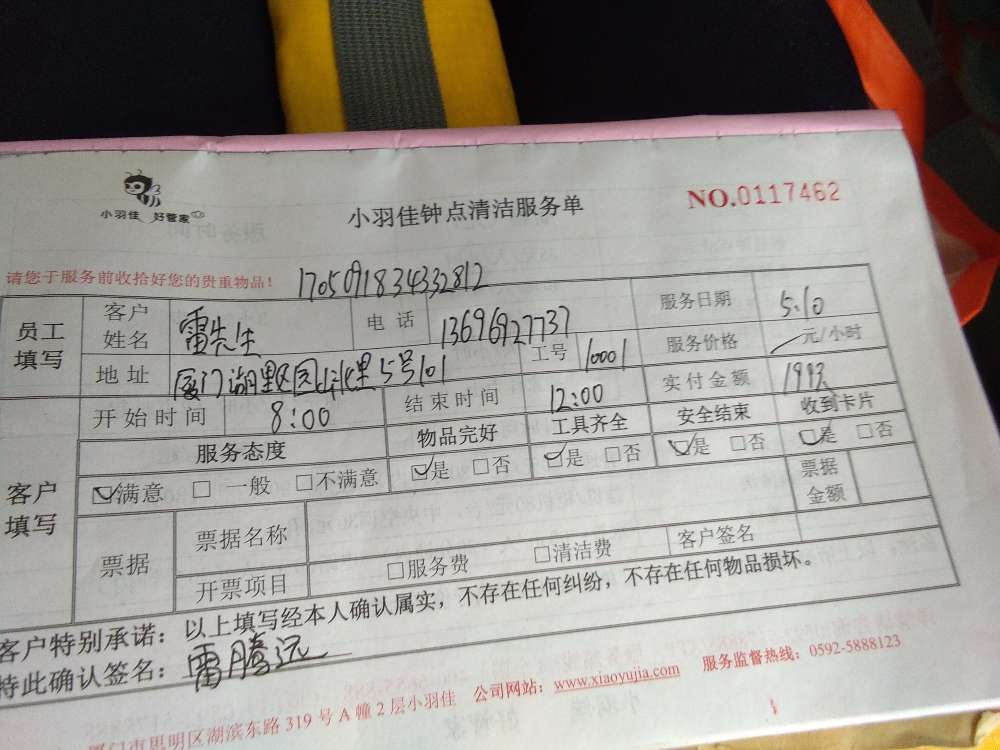 小羽佳 好管家
小羽佳钟点清洁服务单
NO.0117462
请您于服务前收拾好您的贵重物品！
1705091834332812
员工填写 客户姓名 雷先生 电话 13696927737 服务日期 5.10
地址 厦门湖里区园山北里5号101 工号 10001 服务价格 元/小时
客户填写 开始时间 8:00 结束时间 12:00 实付金额
服务态度 物品完好 工具齐全 安全结束 收到卡片
满意 一般 不满意 是 否 是 否 是 否 是 否
票据 票据名称 票据金额
开票项目 服务费 清洁费 客户签名
客户特别承诺：以上填写经本人确认属实，不存在任何纠纷，不存在任何物品损坏。
特此确认签名：雷腾远
厦门市思明区湖滨东路319号A幢2层小羽佳 公司网站：www.xiaoyujia.com 服务监督热线：0592-5888123